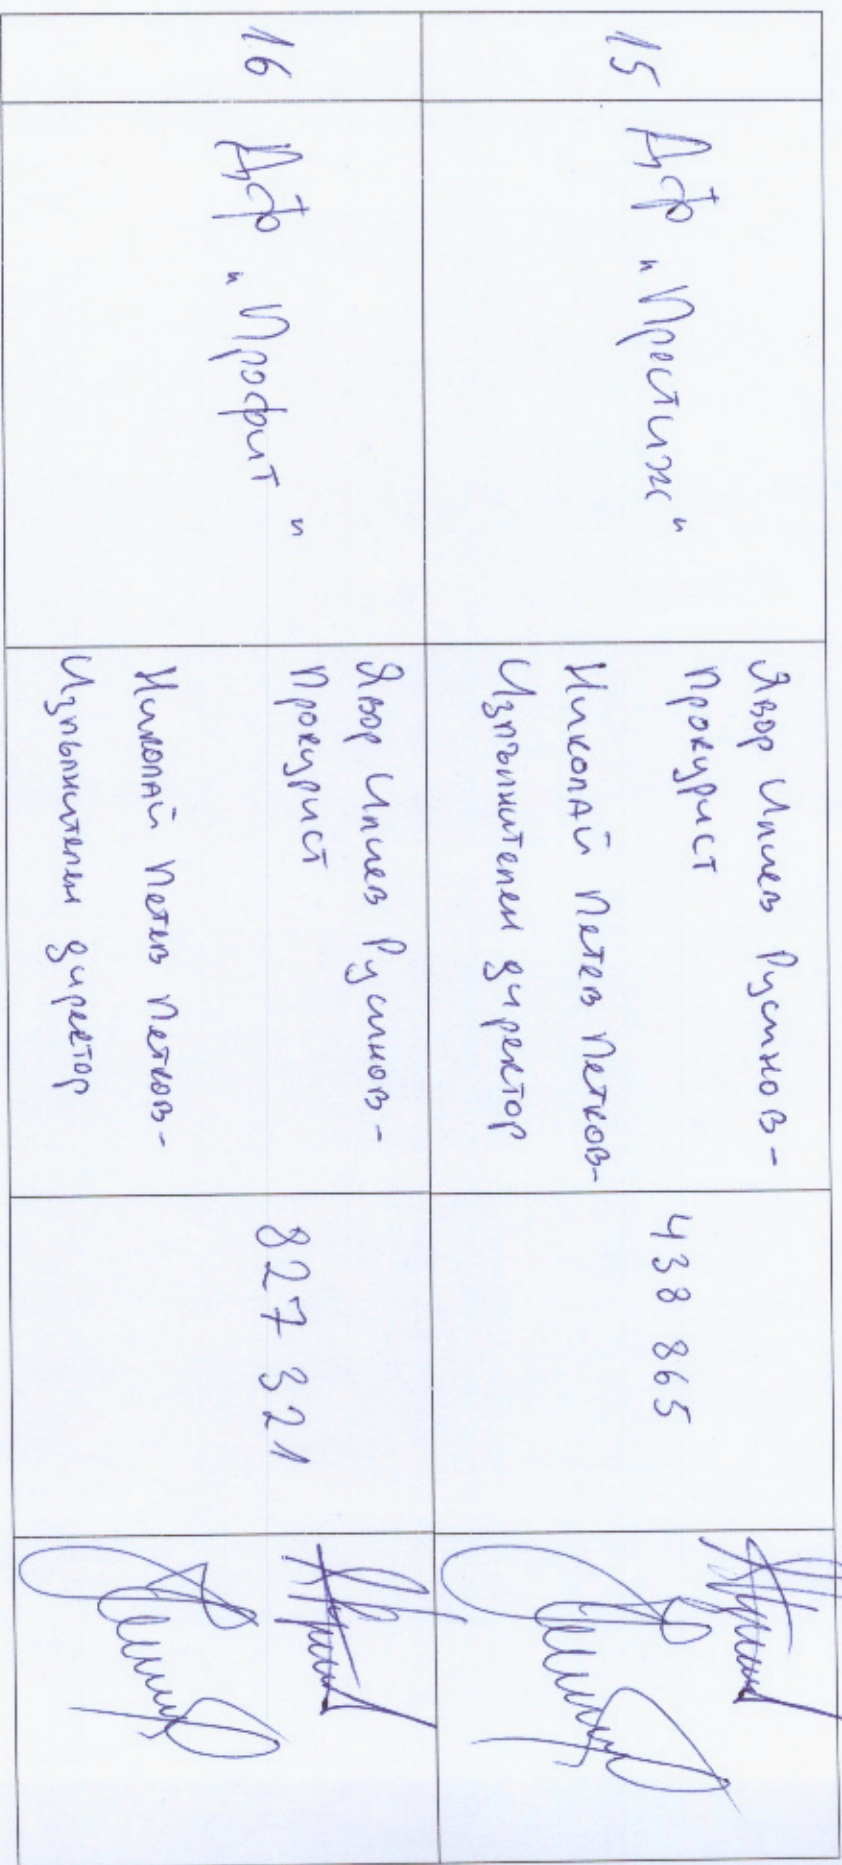 15
ДФ „Престиж"
Явор Илиев Русинов-
Прокурист
Николай Петев Петков-
Изпълнителен директор
438 865
16
ДФ „Профит"
Явор Илиев Русинов-
Прокурист
Николай Петев Петков-
Изпълнителен директор
827 321